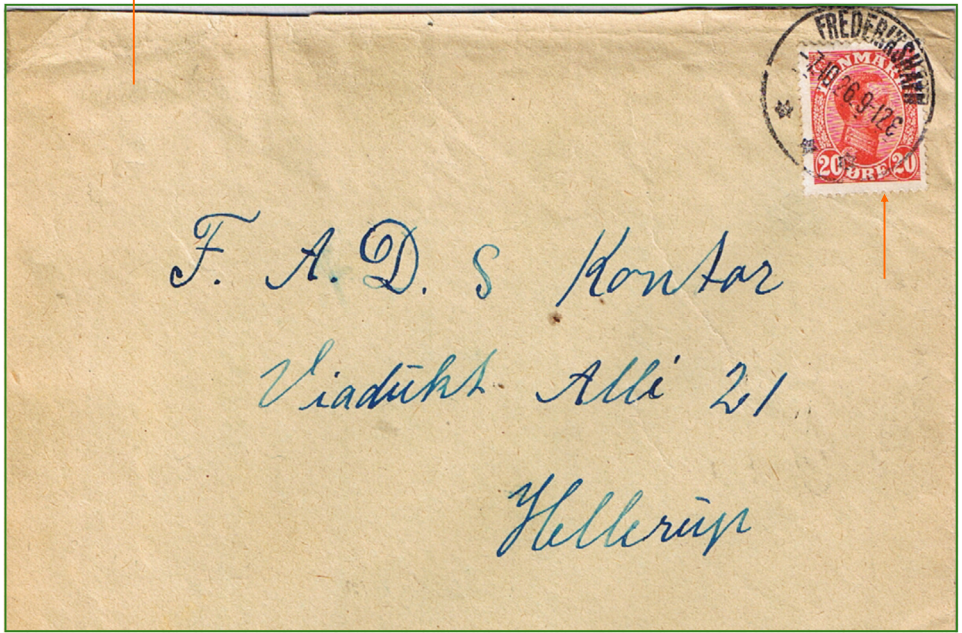 FREDERIKSHAVN
7.10.26.9-12E
DANMARK
20 ØRE 20
F. A. D. S Kontor
Viadukt Alli 21
Hellerup